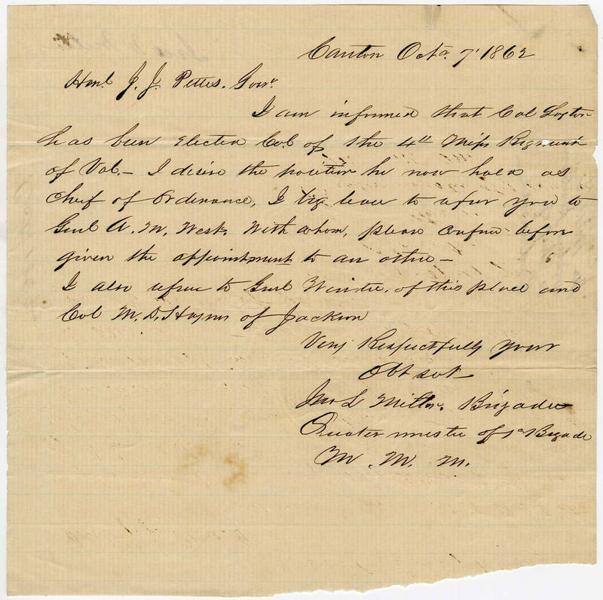 Canton Octo. 7' 1862
Honl J. J. Pettus. Govr.
I am informed that Col
has been elected Col of the 4th Miss Regiment
of Vol.- I desire the position he now holds as
Chief of Ordenance, I beg leave to refer you to
Genl A. M. West. With whom, please confer before
given the appointment to an other -
I also refer to Genl of this place and
Col M. D. Haynes of Jackson
Very Respectfully your
Obt svt
Jno L Brigade
Quater master of 1st Brigade
M. M. M.